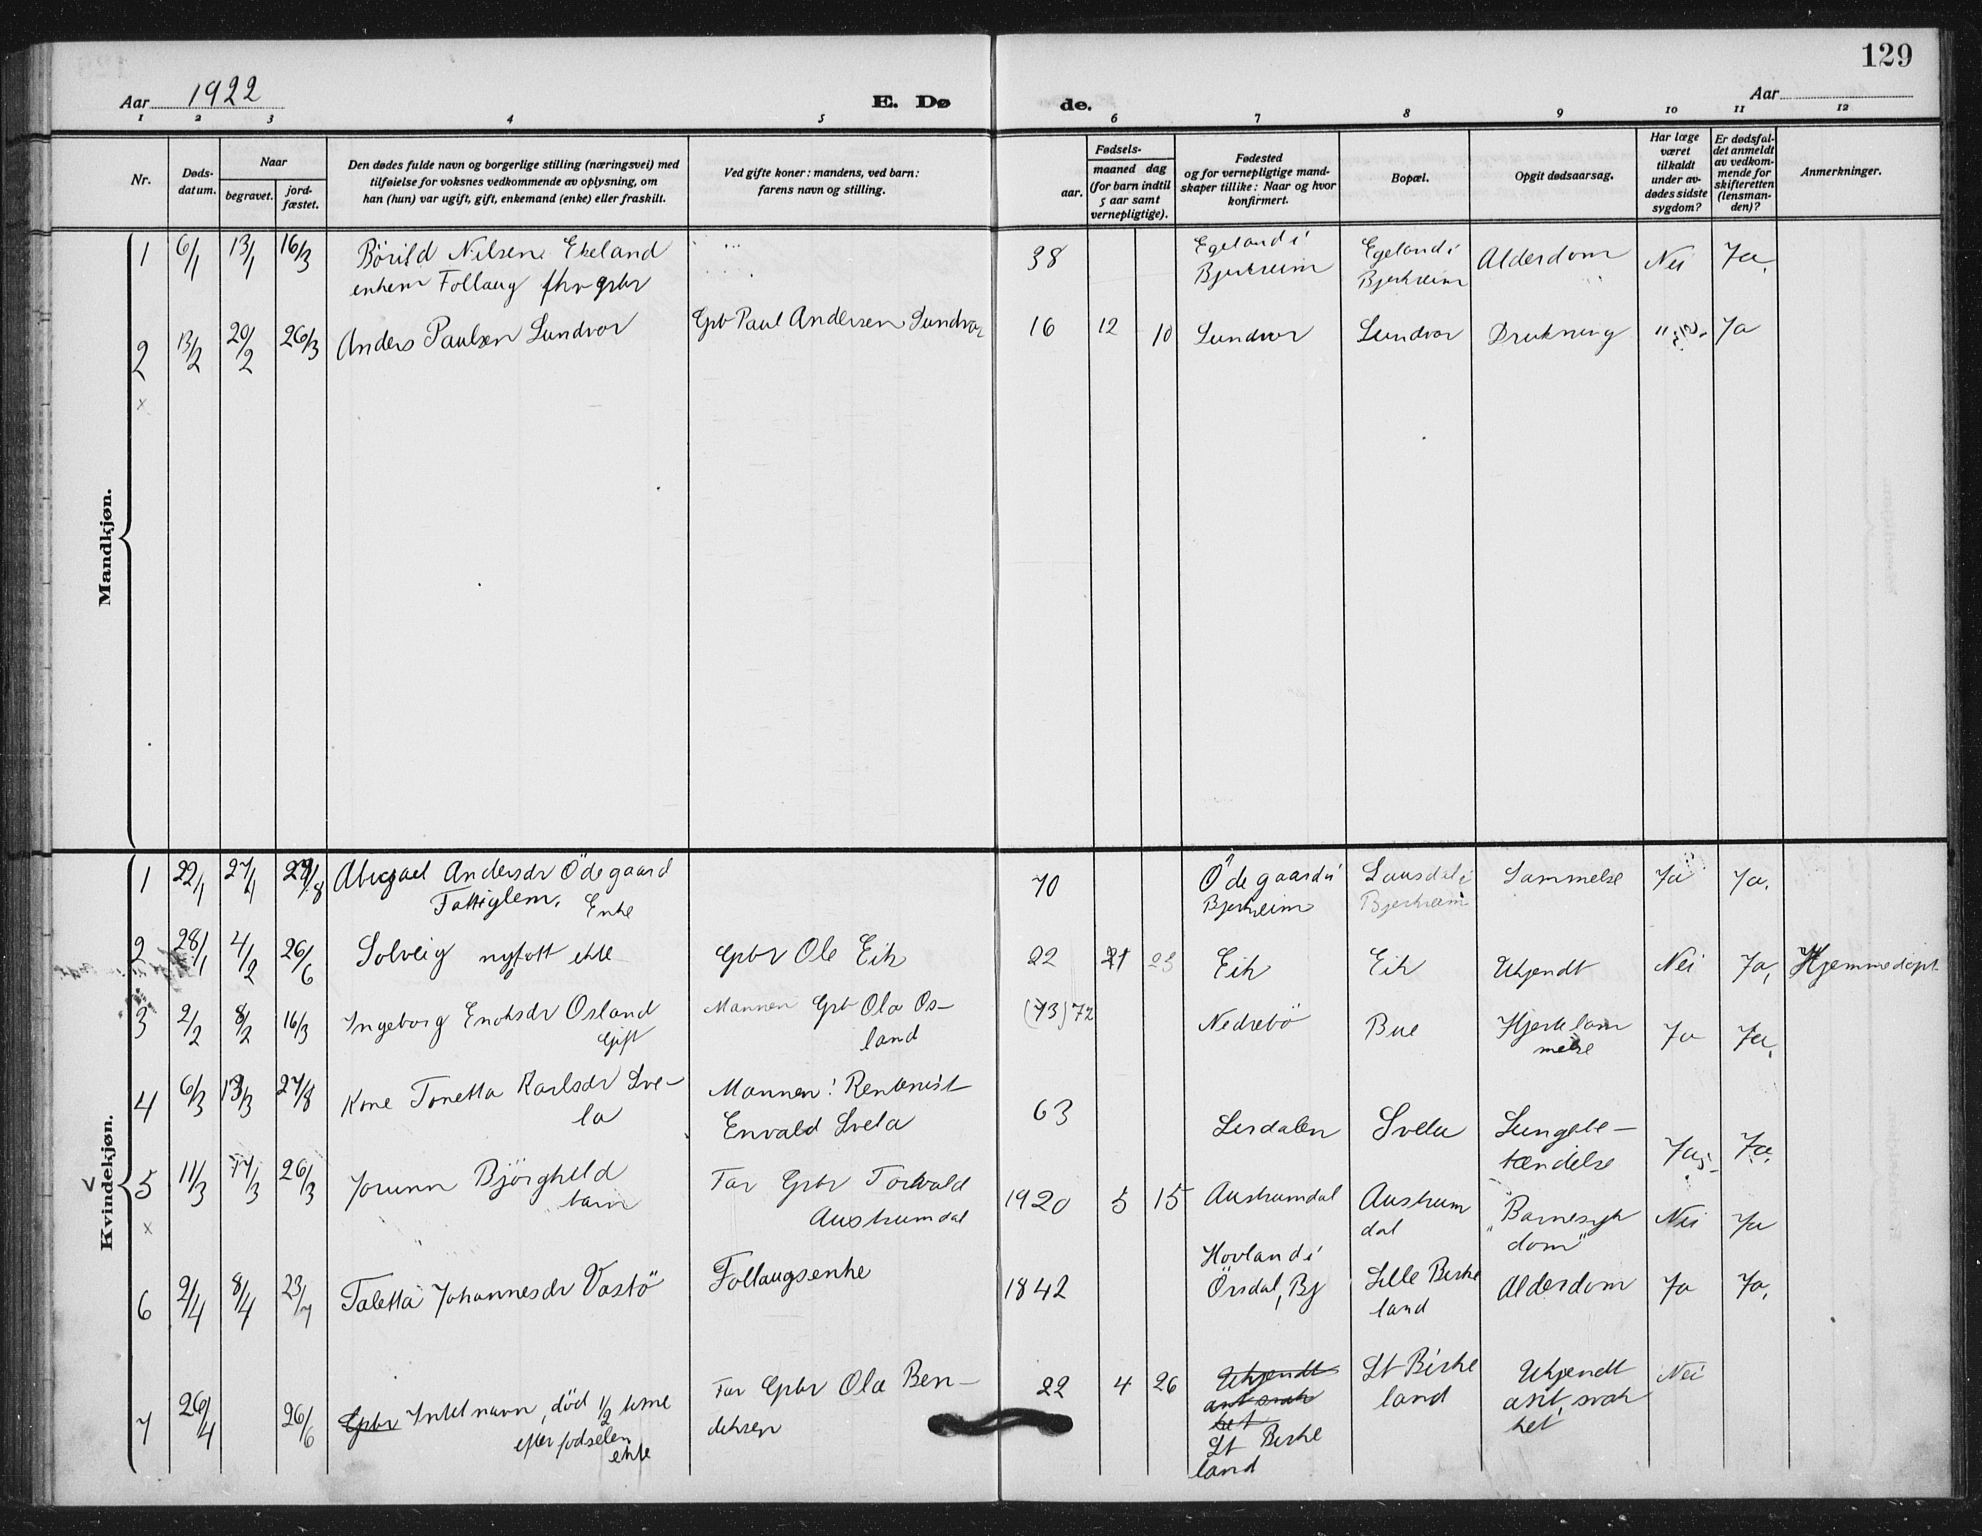 129
Aar 1922
E. Dø
de.
Aar
1 2 3 4 5 6 7 8 9 10 11 12
Nr.
Døds-
datum.
Naar
begravet.
jord-
fæstet.
Den dødes fulde navn og borgerlige stilling (næringsvei) med
tilføielse for voksnes vedkommende av oplysning, om
han (hun) var ugift, gift, enkemand (enke) eller fraskilt.
Ved gifte koner: mandens, ved barn:
farens navn og stilling.
Fødsels-
aar.
maaned dag
(for barn indtil
5 aar samt
vernepligtige).
Fødested
og for vernepligtige mand-
skaper tillike: Naar og hvor
konfirmert.
Bopæl.
Opgit dødsaarsag.
Har læge
været
tilkaldt
under av-
dødes sidste
sygdom?
Er dødsfal-
det anmeldt
av vedkom-
mende for
skifteretten
(lensman-
den)?
Anmerkninger.
Mandkjøn.
1 6/1 13/1 16/3 Børild Nilsen Ekeland
enkem Follaug fhv gbr
38
Egeland i
Bjerkreim
Egeland i
Bjerkreim
Alderdom Nei Ja,
2 13/2 20/2 26/3 Anders Paulsen Lundvor
Gbr Paul Andersen Lundvor
16 12 10 Lundvor Lundvor Drukning Ja
Kvindekjøn.
1 22/1 27/1 Abigael Andersdr Ödegaard
Fattiglem. Enke
70
Ödegaard i
Bjerkreim
Lausdal i
Bjerkreim
Lammelse Ja Ja,
2 28/1 4/2 26/6 Solveig nyfött ekte
Gbr Ole Eik
22 21 23 Eik Eik Ukjendt Nei Ja, Hjemmedöpt
3 2/2 8/2 16/3 Ingeborg Enoksdr Osland
Gift
Mannen Gbr Ola Os-
land
(43) 72
Nedrebö Bue Hjertelam
melse
Ja Ja,
4 6/3 13/3 27/8 Kone Tonetta Karlsdr Sve-
la
Mannen: Rentenist
Envald Svela
63
Lerdalen Svela Lungebe-
tændelse
Ja, Ja,
5 11/3 17/3 26/3 Jorunn Björghild
barn
Far Gbr Torvald
Austrumdal
1920 5 15 Austrumdal Austrum
dal
"Barnesyk
dom"
Nei Ja
6 2/4 8/4 23/7 Taletta Johannesdr Vastö
Follaugsenke
1842
Hovland i
Örsdal, Bj
Lille Birke
land
Alderdom Ja Ja,
7 26/4 26/6 Gbr Intet navn, död 1/2 time
efter födselen
ekte
Far Gbr Ola Ben-
diksen
22 4 26
Ukjendt
ant svak
het
Lt Birke
land
Lt Birke
land
Ukjendt
ant. svak
het
Nei